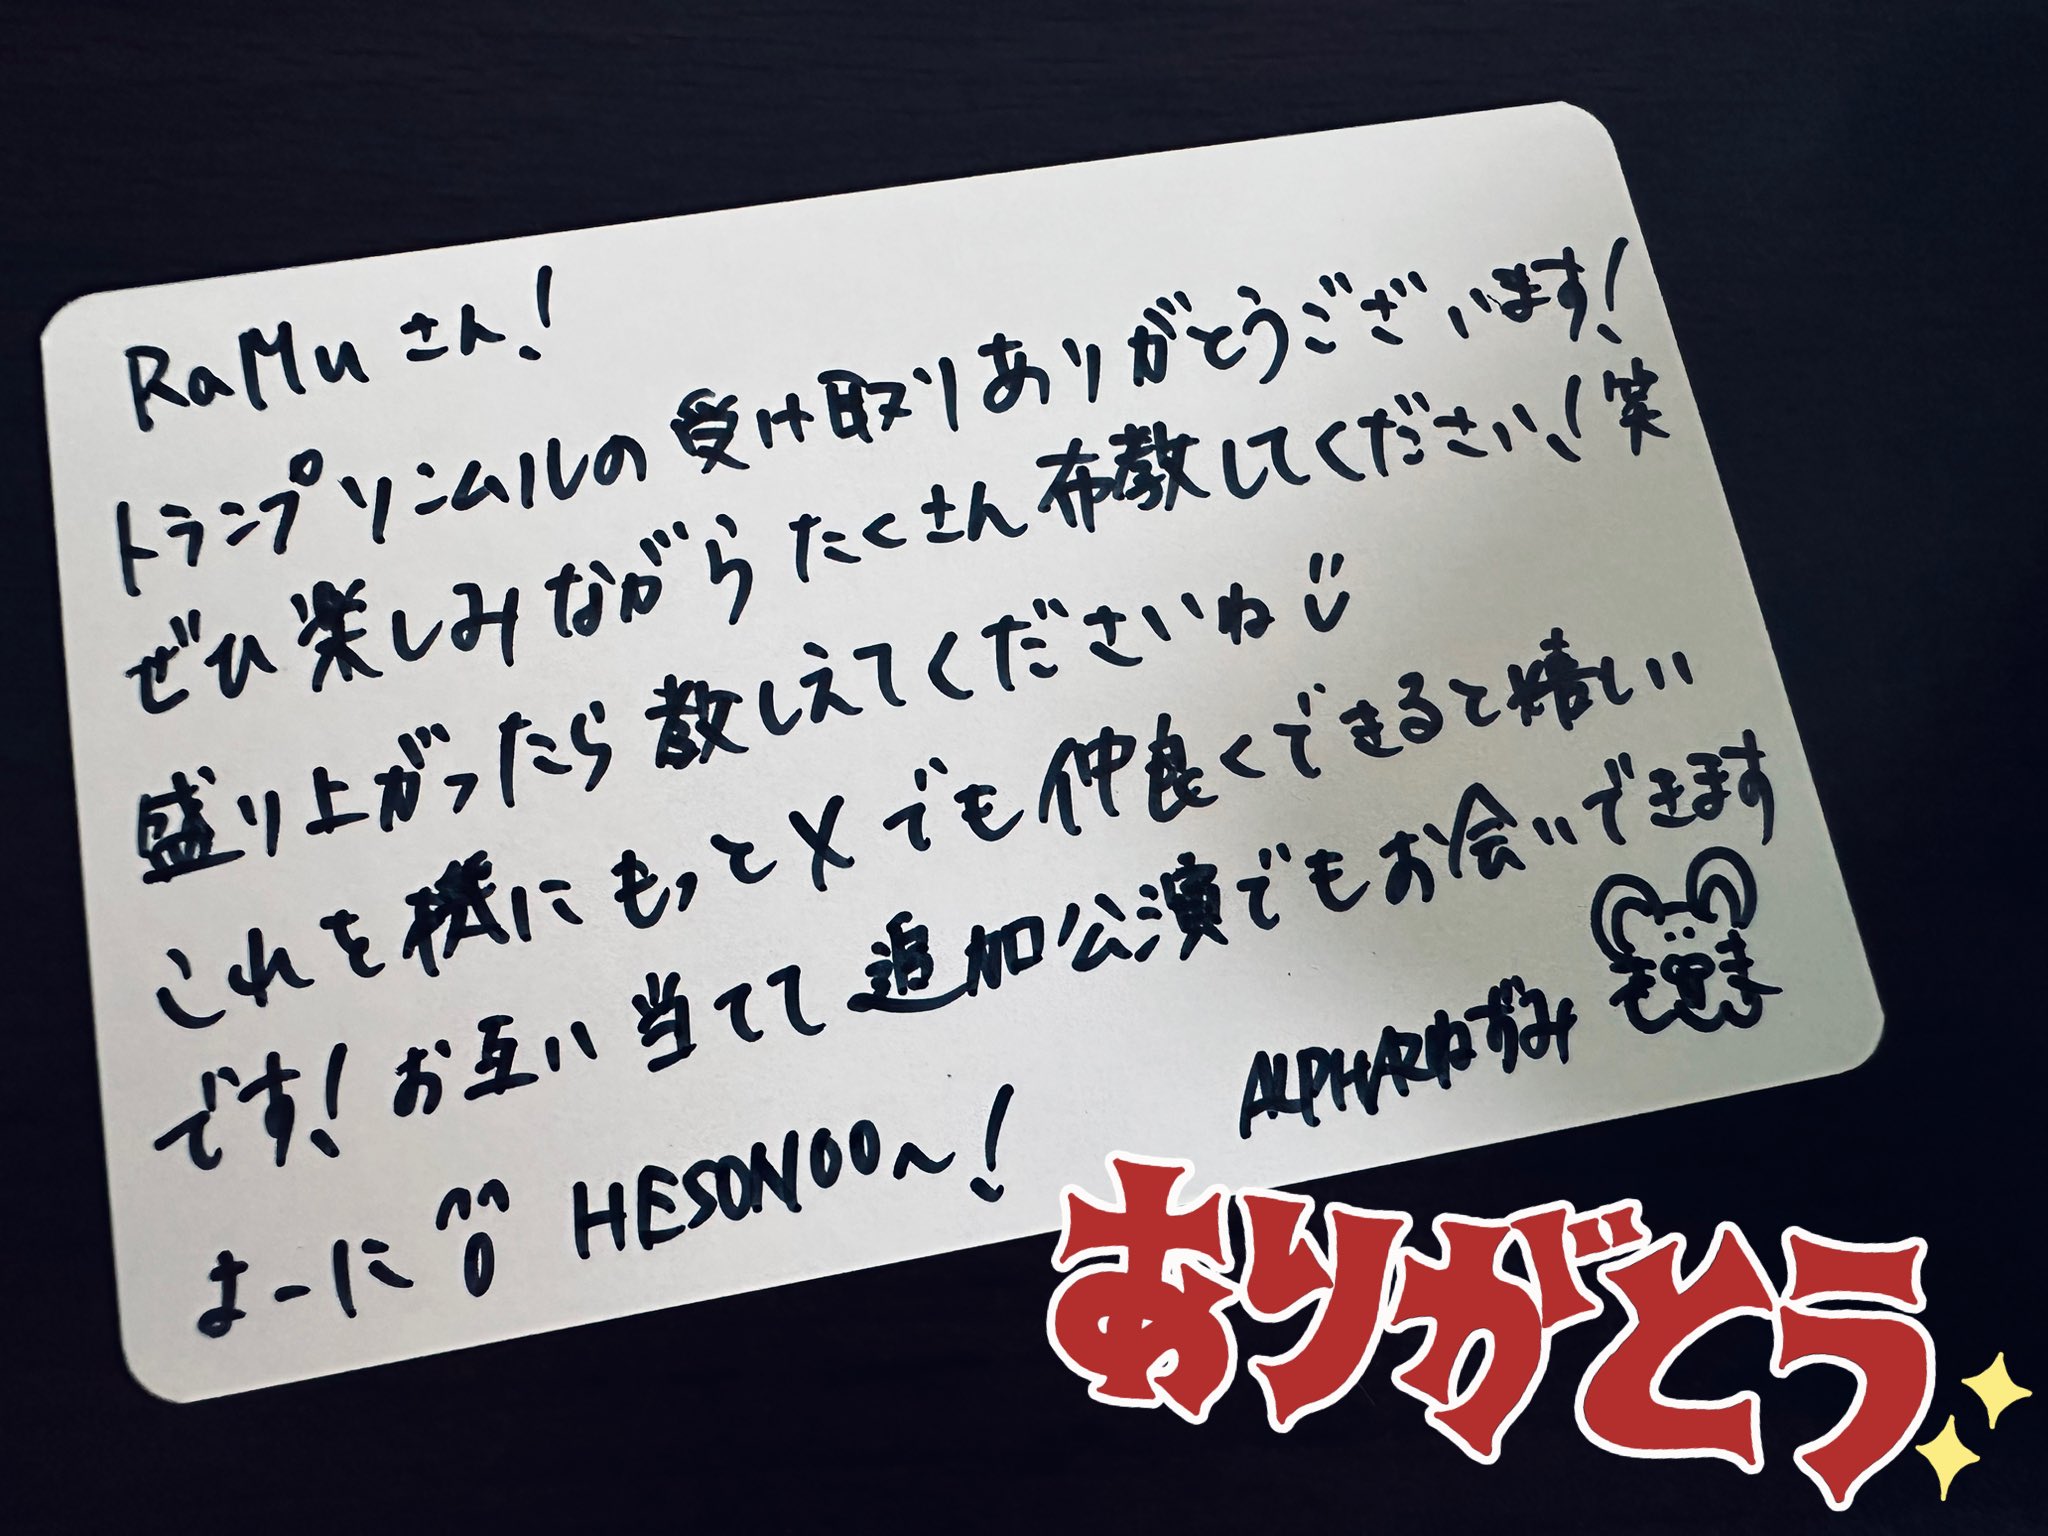 RaMu さん!
トランプソンムルの受け取りありがとうございます!
ぜひ楽しみながらたくさん布教してください!笑
盛り上がったら教えてくださいね
これを機にもっとXでも仲良くできると嬉しい
です!お互い当てて追加公演でもお会いできます
よーに HESONOO~!
ALPHARねずみ
ありがとう